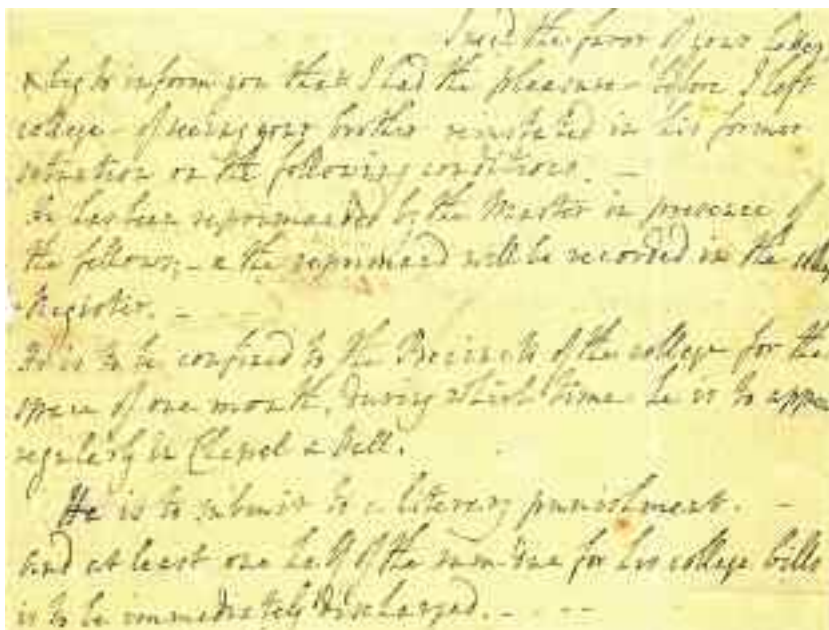 I rec'd the favor of your letter
& beg to inform you that I had the pleasure - before I left
college - of seeing your brother reinstated in his former
situation on the following conditions. -
He has been reprimanded by the Master in presence of
the fellows; - & the reprimand will be recorded in the
Register. -
He is to be confined to the Precincts of the college for the
space of one month, during which time he is to appea
regularly in Chapel & Hall.
He is to submit to a literary punishment. -
And at least one half of the sum due for his college bills
is to be immediately discharged. - - -